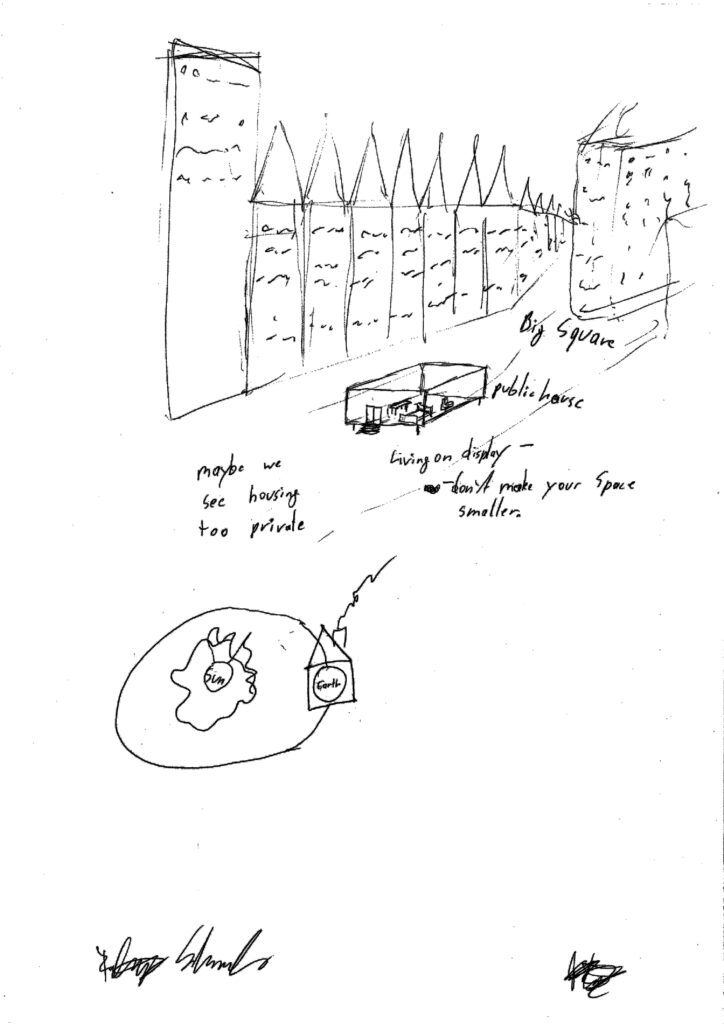 Big Square
public house
Living on display –
– don't make your space
smaller.
maybe we
see housing
too private
Sun
Earth